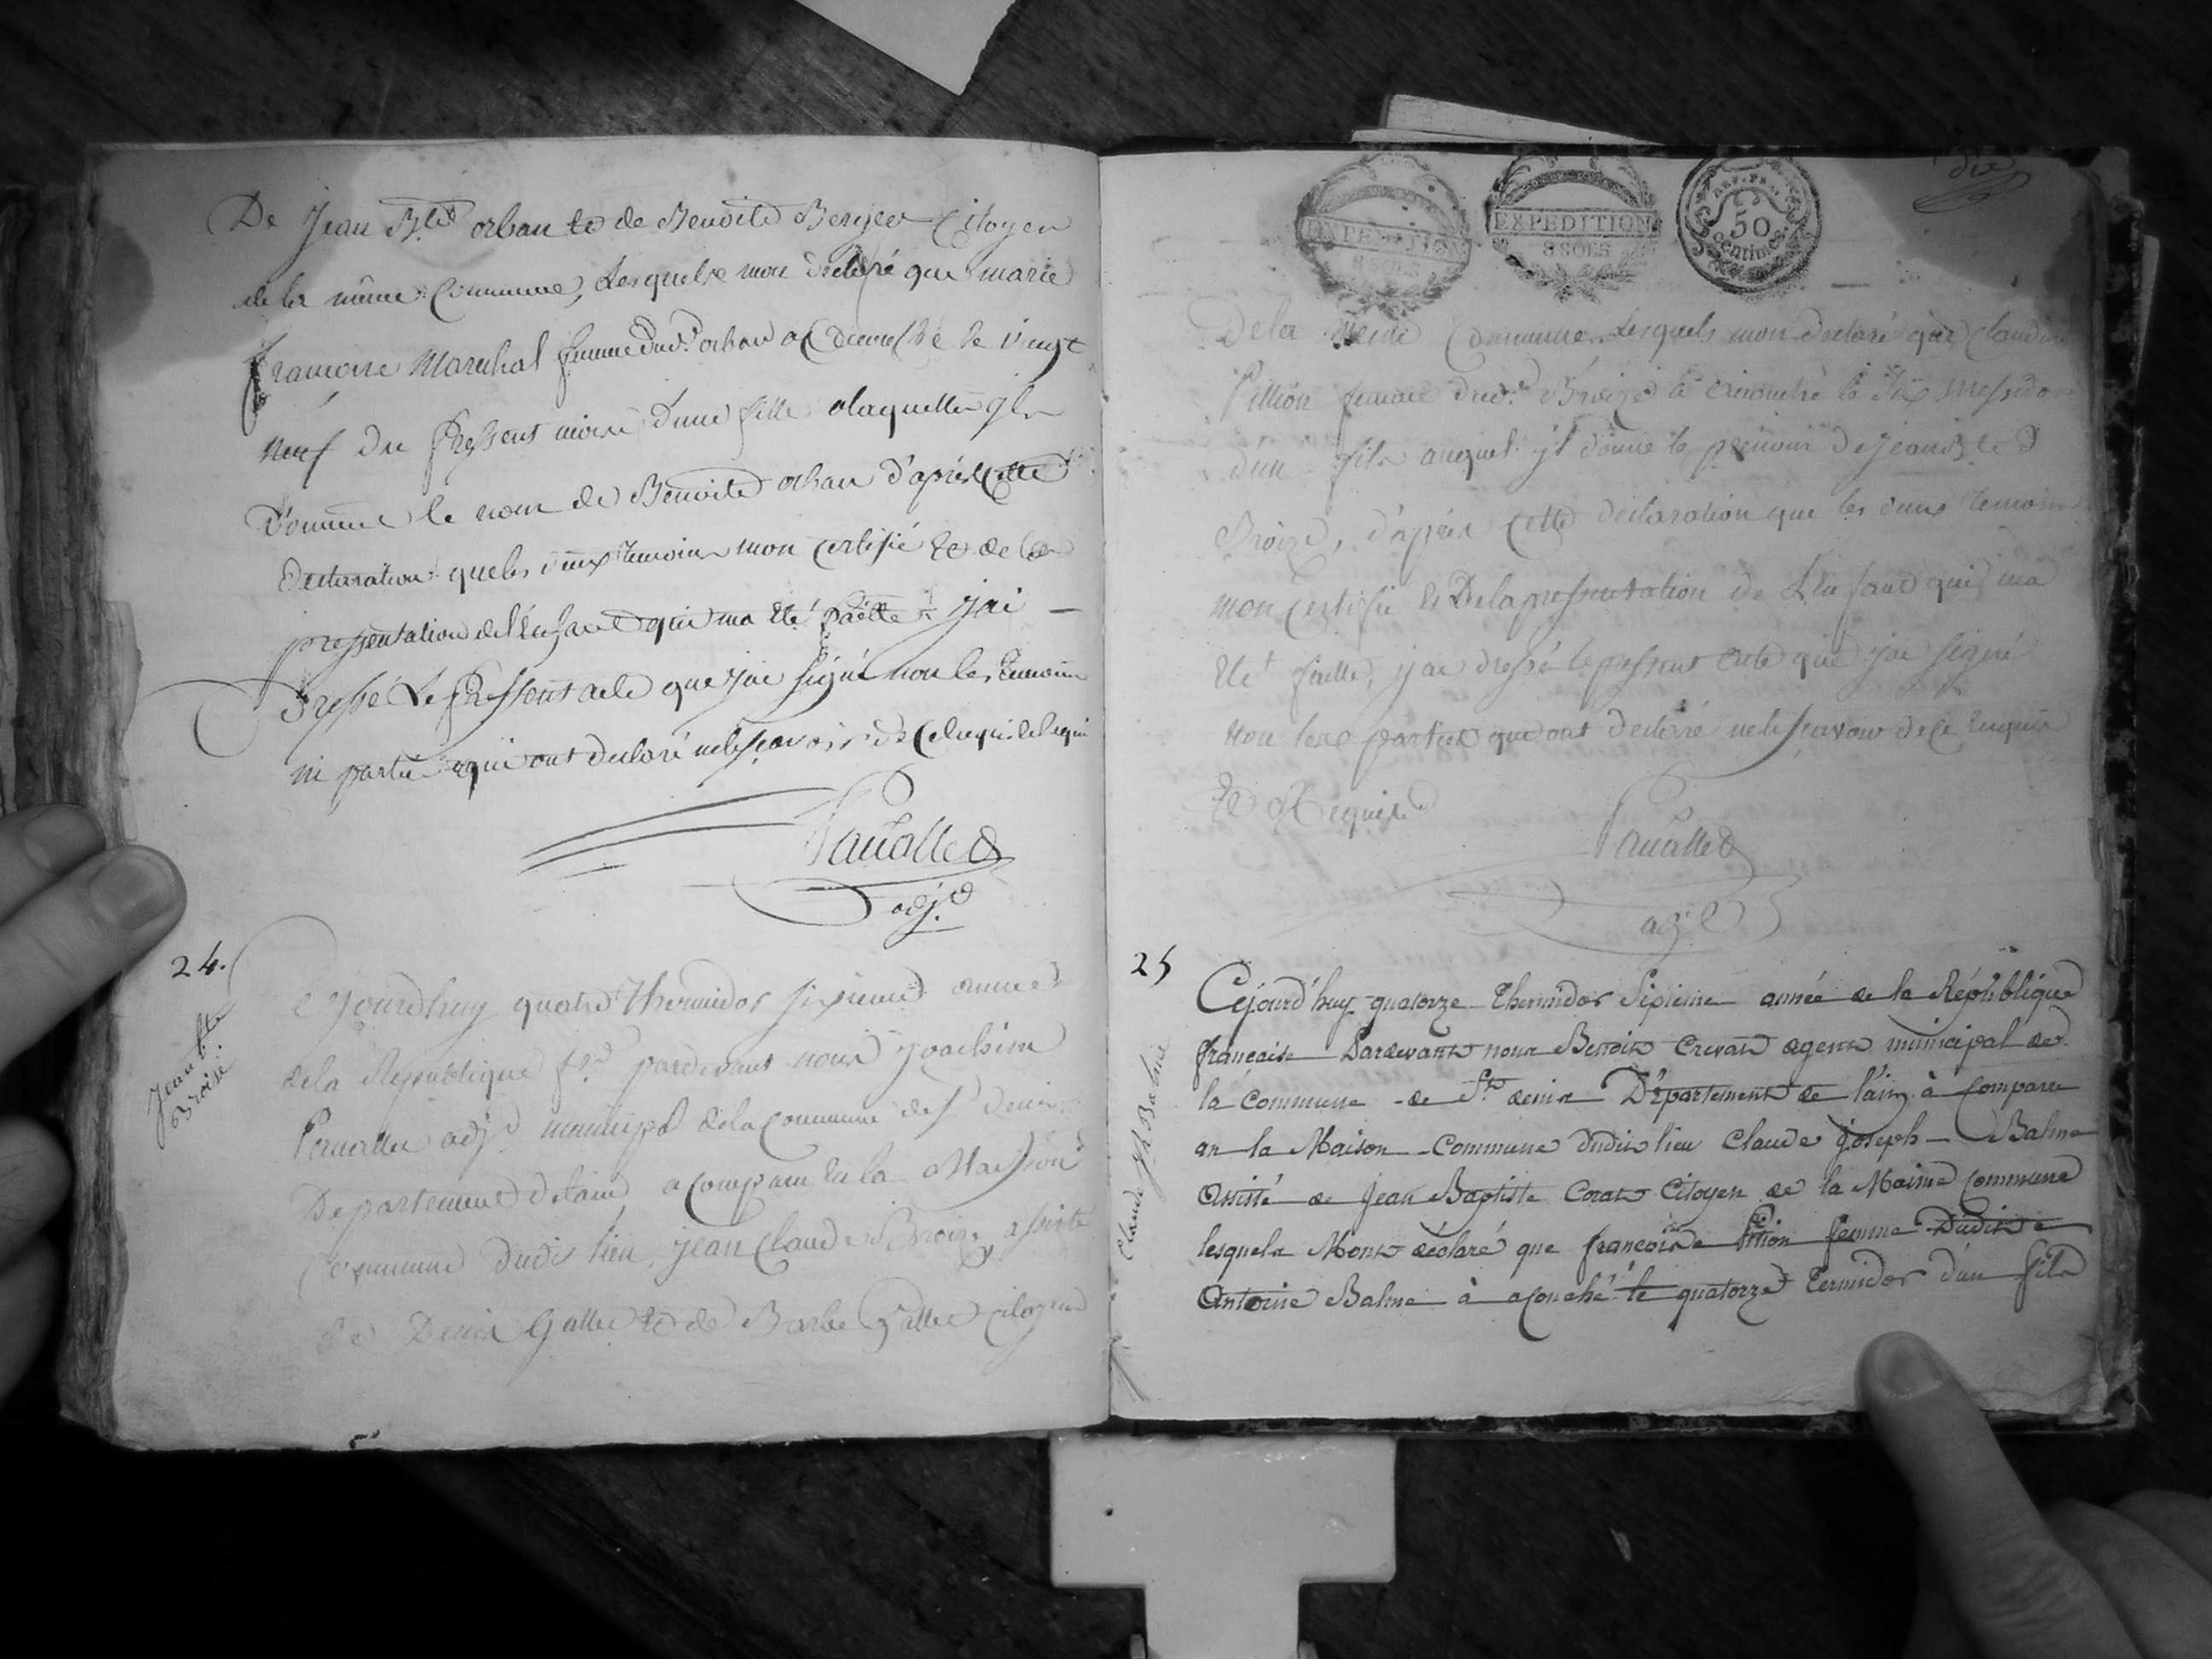 De Jean Bte orban et de Benoite Berger Citoyen
de la même Commune, Lesquels mon déclaré que marie
francoise Marechal femme dud. orban a accouché le vingt
neuf du pressent mois d'une fille a laquelle yls
donnent le nom de Benoite orban d'après cette
declaration que les deux temoins mon certifié et de la
pressentation de l'enfant qui ma été faitte j'ai
dressé Le pressent acte que j'ai signé non les temoins
ni partie qui ont declaré ne le sçavoir de ce enquis et requis
Pauallet
adjt
24.
Jean Bte
Broise
Cejourdhuy quatre thermidor sixieme annee
dela Republique f.se pardevant nous Joachim
Pauallet adjt municipal dela commune de st denis
Departement delain a comparu en la Maison
Commune dudit lieu, jean Claude Broize assisté
de Denis Gallet et de Barbe Gallet citoyen
dix
EXPEDITION
8 SOLS
EXPEDITION
8 SOLS
REP. FRA.
50
centimes
Dela meme Commune Lesquels mon declaré que Claudine
Pittion femme dud. Broize a accouché le dix Messidor
d'un fils auquel yl donne le prenom de jean Bte
Broize, d'après cette declaration que les deux temoins
mon certifié et Dela pressentation de L'enfant qui ma
été faitte, j'ai dressé le pressent acte que j'ai signé
non les parties qui ont declaré ne le sçavoir de ce enquis
et Requis
Pauallet
adjt
25
Claude Jh Balme
Cejourd'huy quatorze Thermidor Sixieme année de la République
française Pardevant nous Benoit Crevat agent municipal de
la Commune de St denis Département de l'ain à comparu
an la Maison Commune dudit lieu Claude joseph Balme
assisté de Jean Baptiste Corat Citoyen de la Maime commune
lesquels Mont déclaré que francoise Pition femme dudit
Antoine Balme à acouché le quatorze Termidor d'un fils